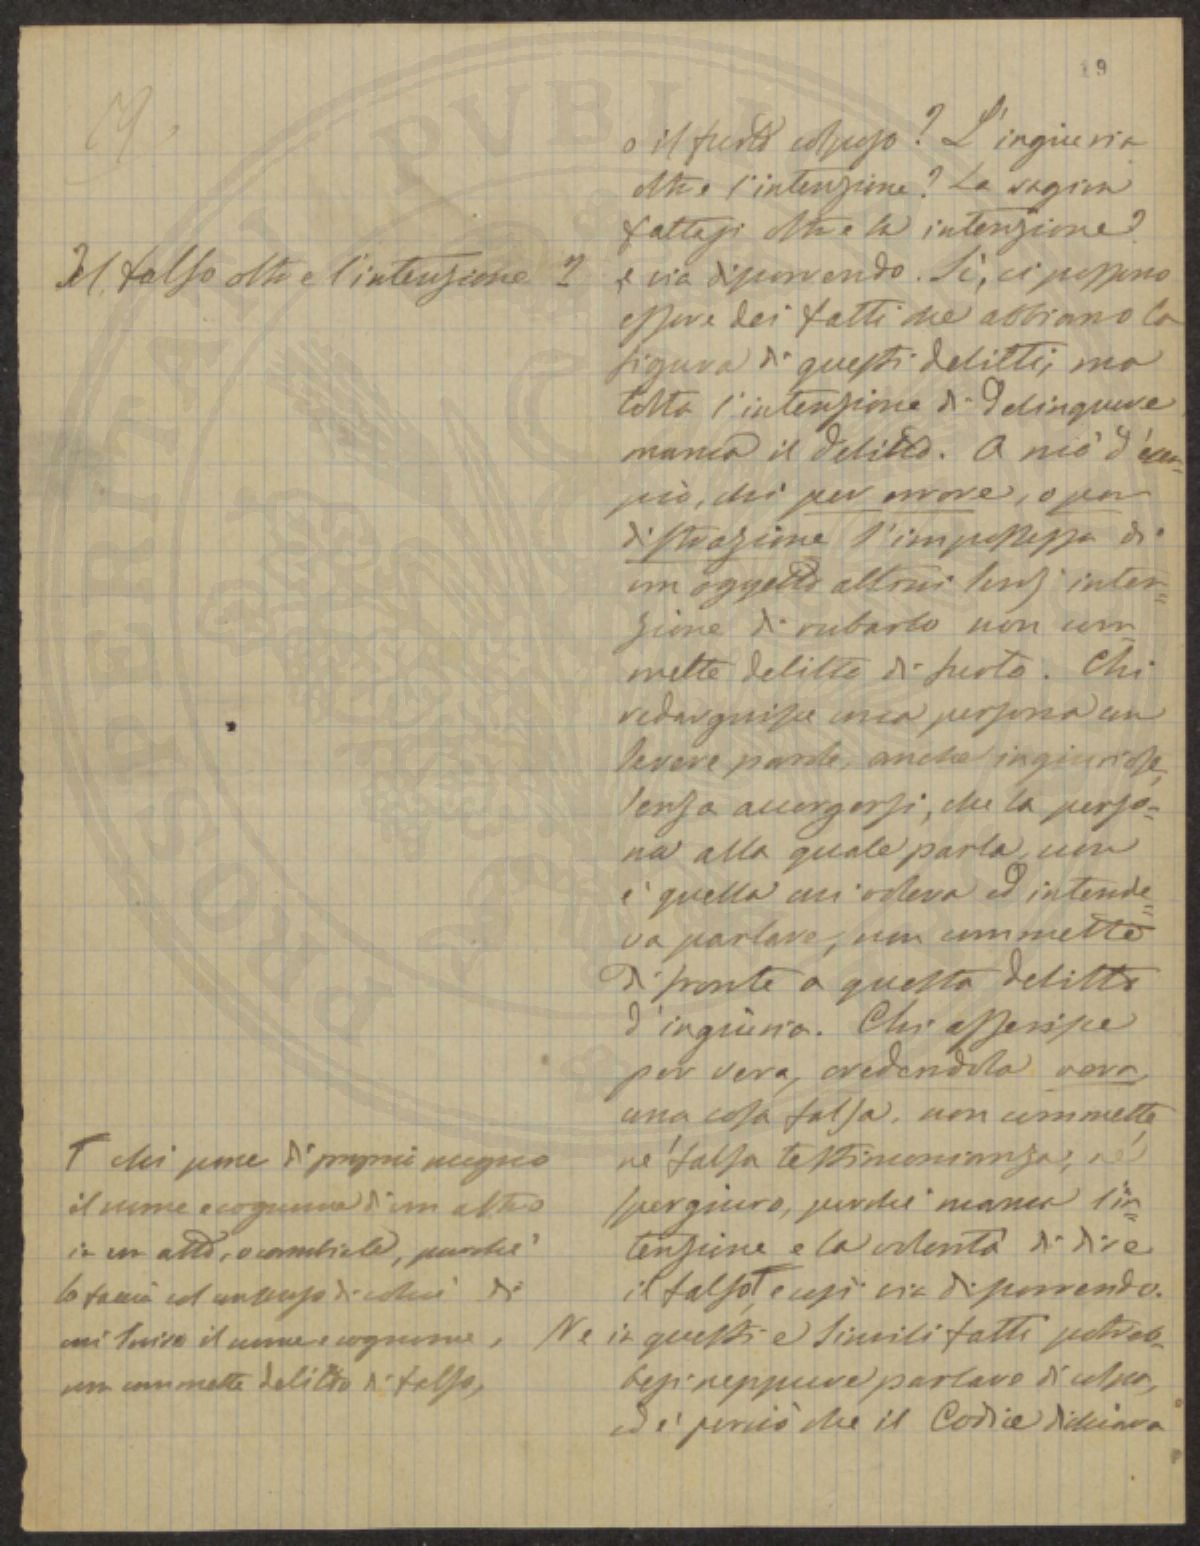 19
19.
o il furto colposo? L'ingiuria
oltre l'intenzione? La rapina
fattasi oltre la intenzione?
Il falso oltre l'intenzione?
e via discorrendo. Sì, ci possono
essere dei fatti che abbiano la
figura di questi delitti, ma
tolta l'intenzione di delinquere
manca il delitto. A mò d'esem=
pio, chi per errore, o per
distrazione s'impossessa di
un oggetto altrui senz' inten=
zione di rubarlo non com
mette delitto di furto. Chi
redarguisce una persona con
severe parole, anche ingiuriose,
senza accorgersi, che la perso=
na alla quale parla, non
è quella cui voleva ed intende=
va parlare, non commette
di fronte a questa delitto
d'ingiuria. Chi asserisce
per vera, credendola vera,
una cosa falsa, non commette
nè falsa testimonianza, nè
spergiuro, perchè manca l'in=
tenzione e la volontà di dire
il falso, T e così via discorrendo.
T chi pone di proprio pugno
il nome e cognome di un altro
in un atto, o cambiale, purchè
lo faccia col consenso di colui di
cui scrive il nome e cognome,
non commette delitto di falso,
Ne in questi e simili fatti potreb=
besi neppure parlare di colpa,
ed è perciò che il Codice dichiara
PROSPERITATI PUBLICAE